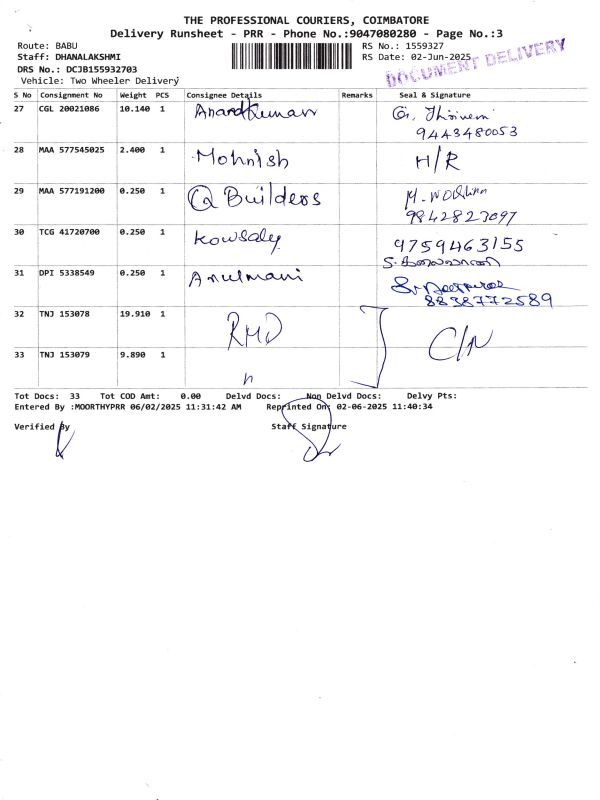 THE PROFESSIONAL COURIERS, COIMBATORE
Delivery Runsheet - PRR - Phone No.:9047080280 - Page No.:3
Route: BABU
RS No.: 1559327
Staff: DHANALAKSHMI
RS Date: 02-Jun-2025
DRS No.: DCJB155932703
DOCUMENT DELIVERY
Vehicle: Two Wheeler Delivery
S No Consignment No Weight PCS Consignee Details Remarks Seal & Signature
27 CGL 20021086 10.140 1 Anandkumar
9443480053
28 MAA 577545025 2.400 1 Mohnish H/R
29 MAA 577191200 0.250 1 Q Builders
9842827097
30 TCG 41720700 0.250 1 Kowsaly 9759463155
31 DPI 5338549 0.250 1 Arulmani
8838772589
32 TNJ 153078 19.910 1 RMD C/N
33 TNJ 153079 9.890 1 "
Tot Docs: 33 Tot COD Amt: 0.00 Delvd Docs: Non Delvd Docs: Delvy Pts:
Entered By :MOORTHYPRR 06/02/2025 11:31:42 AM Reprinted On: 02-06-2025 11:40:34
Verified By Staff Signature